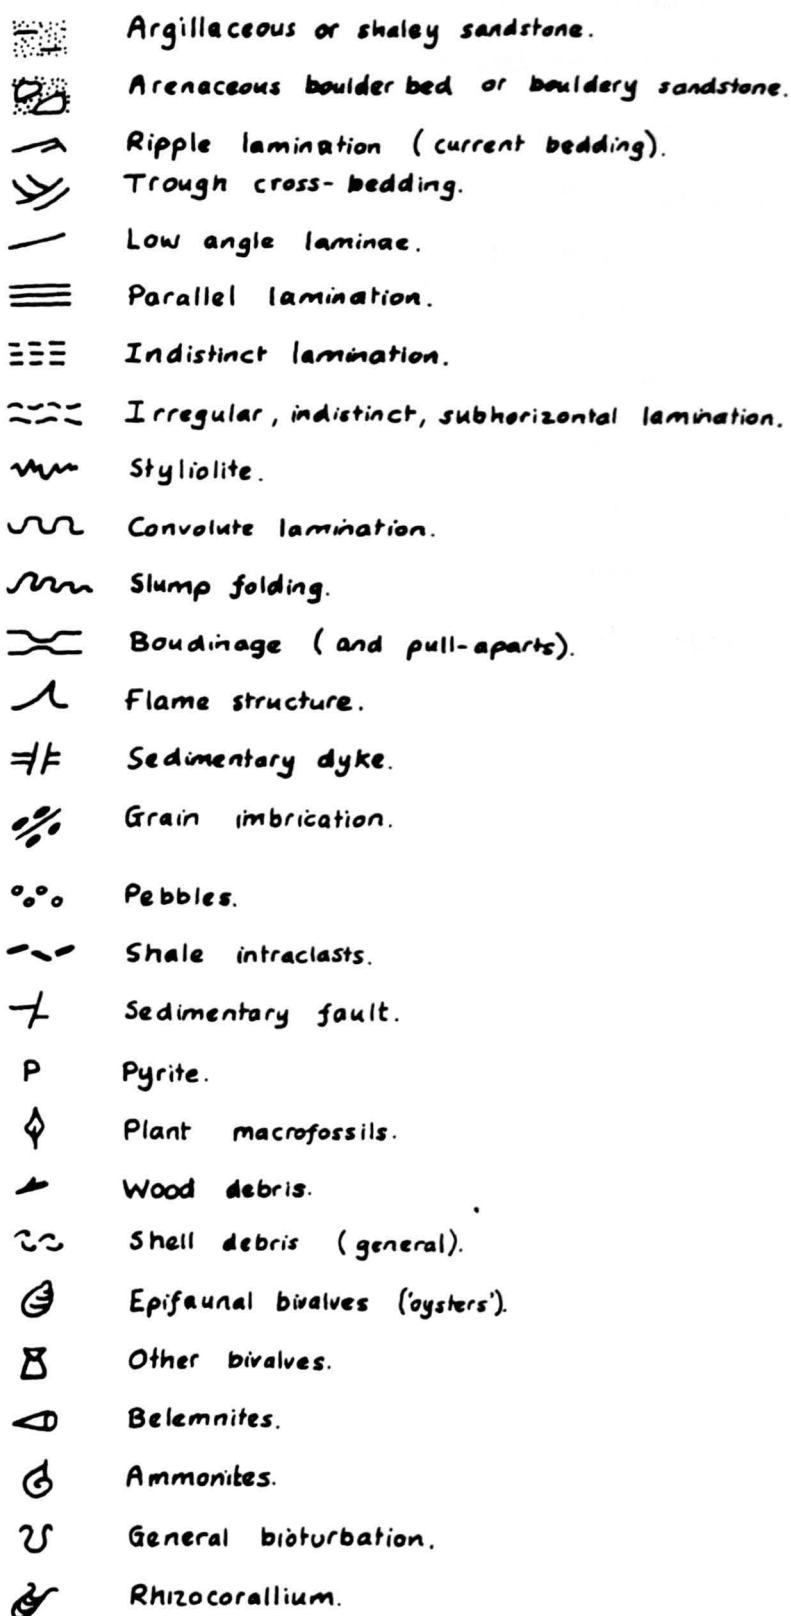 Argillaceous or shaley sandstone.
Arenaceous boulder bed or bouldery sandstone.
Ripple lamination (current bedding).
Trough cross-bedding.
Low angle laminae.
Parallel lamination.
Indistinct lamination.
Irregular, indistinct, subhorizontal lamination.
Styliolite.
Convolute lamination.
Slump folding.
Boudinage (and pull-aparts).
Flame structure.
Sedimentary dyke.
Grain imbrication.
Pebbles.
Shale intraclasts.
Sedimentary fault.
P Pyrite.
Plant macrofossils.
Wood debris.
Shell debris (general).
Epifaunal bivalves ('oysters').
Other bivalves.
Belemnites.
Ammonites.
General bioturbation.
Rhizocorallium.